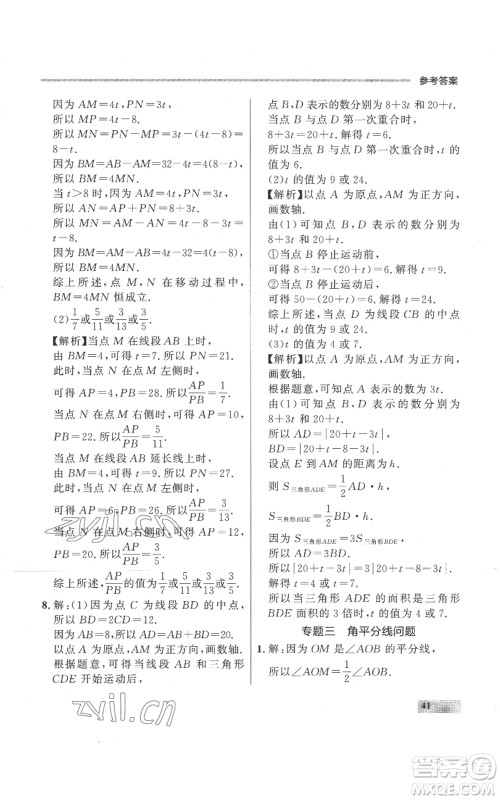 参考答案
因为 AM=4t,PN=3t,
所以 PM=4t-8.
所以 MN=PN-PM=3t-(4t-8)=
8-t.
因为 BM=AB-AM=32-4t=4(8-t),
所以 BM=4MN.
当 t>8 时,如图,
所以 AN=AP+PN=8+3t.
因为 AM=4t,
所以 MN=AM-AN=t-8.
因为 BM=AM-AB=4t-32=4(t-8),
所以 BM=4MN.
综上所述,点 M,N 在移动过程中,
BM=4MN 恒成立.
(2)1/7或5/11或3/13或3/5.
【解析】当点 M 在线段 AB 上时,
由 BM=4,可得 BN=1 或 BN=7.
此时,当点 N 在点 M 左侧时,
可得 AP=4,PB=28. 所以AP/PB=1/7.
当点 N 在点 M 右侧时,可得 AP=10,
PB=22. 所以AP/PB=5/11.
当点 M 在线段 AB 延长线上时,
由 BM=4,
此时,当点 N 在点 M 左侧时,
可得 AP=6,PB=26. 所以AP/PB=3/13.
当点 N 在点 M 右侧时,可得 AP=12,
PB=20. 所以AP/PB=3/5.
综上所述,AP/PB的值为1/7或5/11或3/13或3/5.
8. 解:(1)因为点 C 为线段 BD 的中点,
所以 BD=2CD=12.
因为当线段 AB 和三角形
CDE 开始运动后,
点 B,D 表示的数分别为 8+3t 和 20+t.
当点 B 与点 D 第一次重合时,
8+3t=20+t. 解得 t=6. 所以 t 的
值为 6.
(2)t 的值为 9 或 24.
【解析】以点 A 为原点,AM 为正方向,
画数轴.
由(1)可知点 B,D 表示的数分别为
8+3t 和 20+t.
①当点 B 停止运动前,
可得 8+3t-(20+t)=6. 解得 t=9.
②当点 B 停止运动后,
可得 50-(20+t)=6. 解得 t=24.
综上所述,当点 D 为线段 CB 的中点
时,t 的值为 9 或 24.
(3)t 的值为 9 或 24.
【解析】以点 A 为原点,AM 为正方向,
画数轴.
根据题意,可知点 A 表示的数为 3t.
由(1)可知点 B,D 表示的数分别为
8+3t 和 20+t.
所以 AD=|20+t-3t|,
BD=|20+t-(8+3t)|.
设点 E 到 AM 的距离为 h.
则 S三角形ADE=1/2AD·h,
S三角形BDE=1/2BD·h.
因为 S三角形ADE=3S三角形BDE,
所以 AD=3BD.
所以|20+t-3t|=3|20+t-(8+3t)|.
解得 t=4 或 t=7.
综上所述,当三角形 ADE 的面积是三角形
BDE 面积的 3 倍时,t 的值为 4 或 7.
专题三 角平分线问题
1. 解:因为 OM 是∠AOB 的平分线,
所以∠AOM=1/2∠AOB.
41
zyjl.cn
zyjl.cn